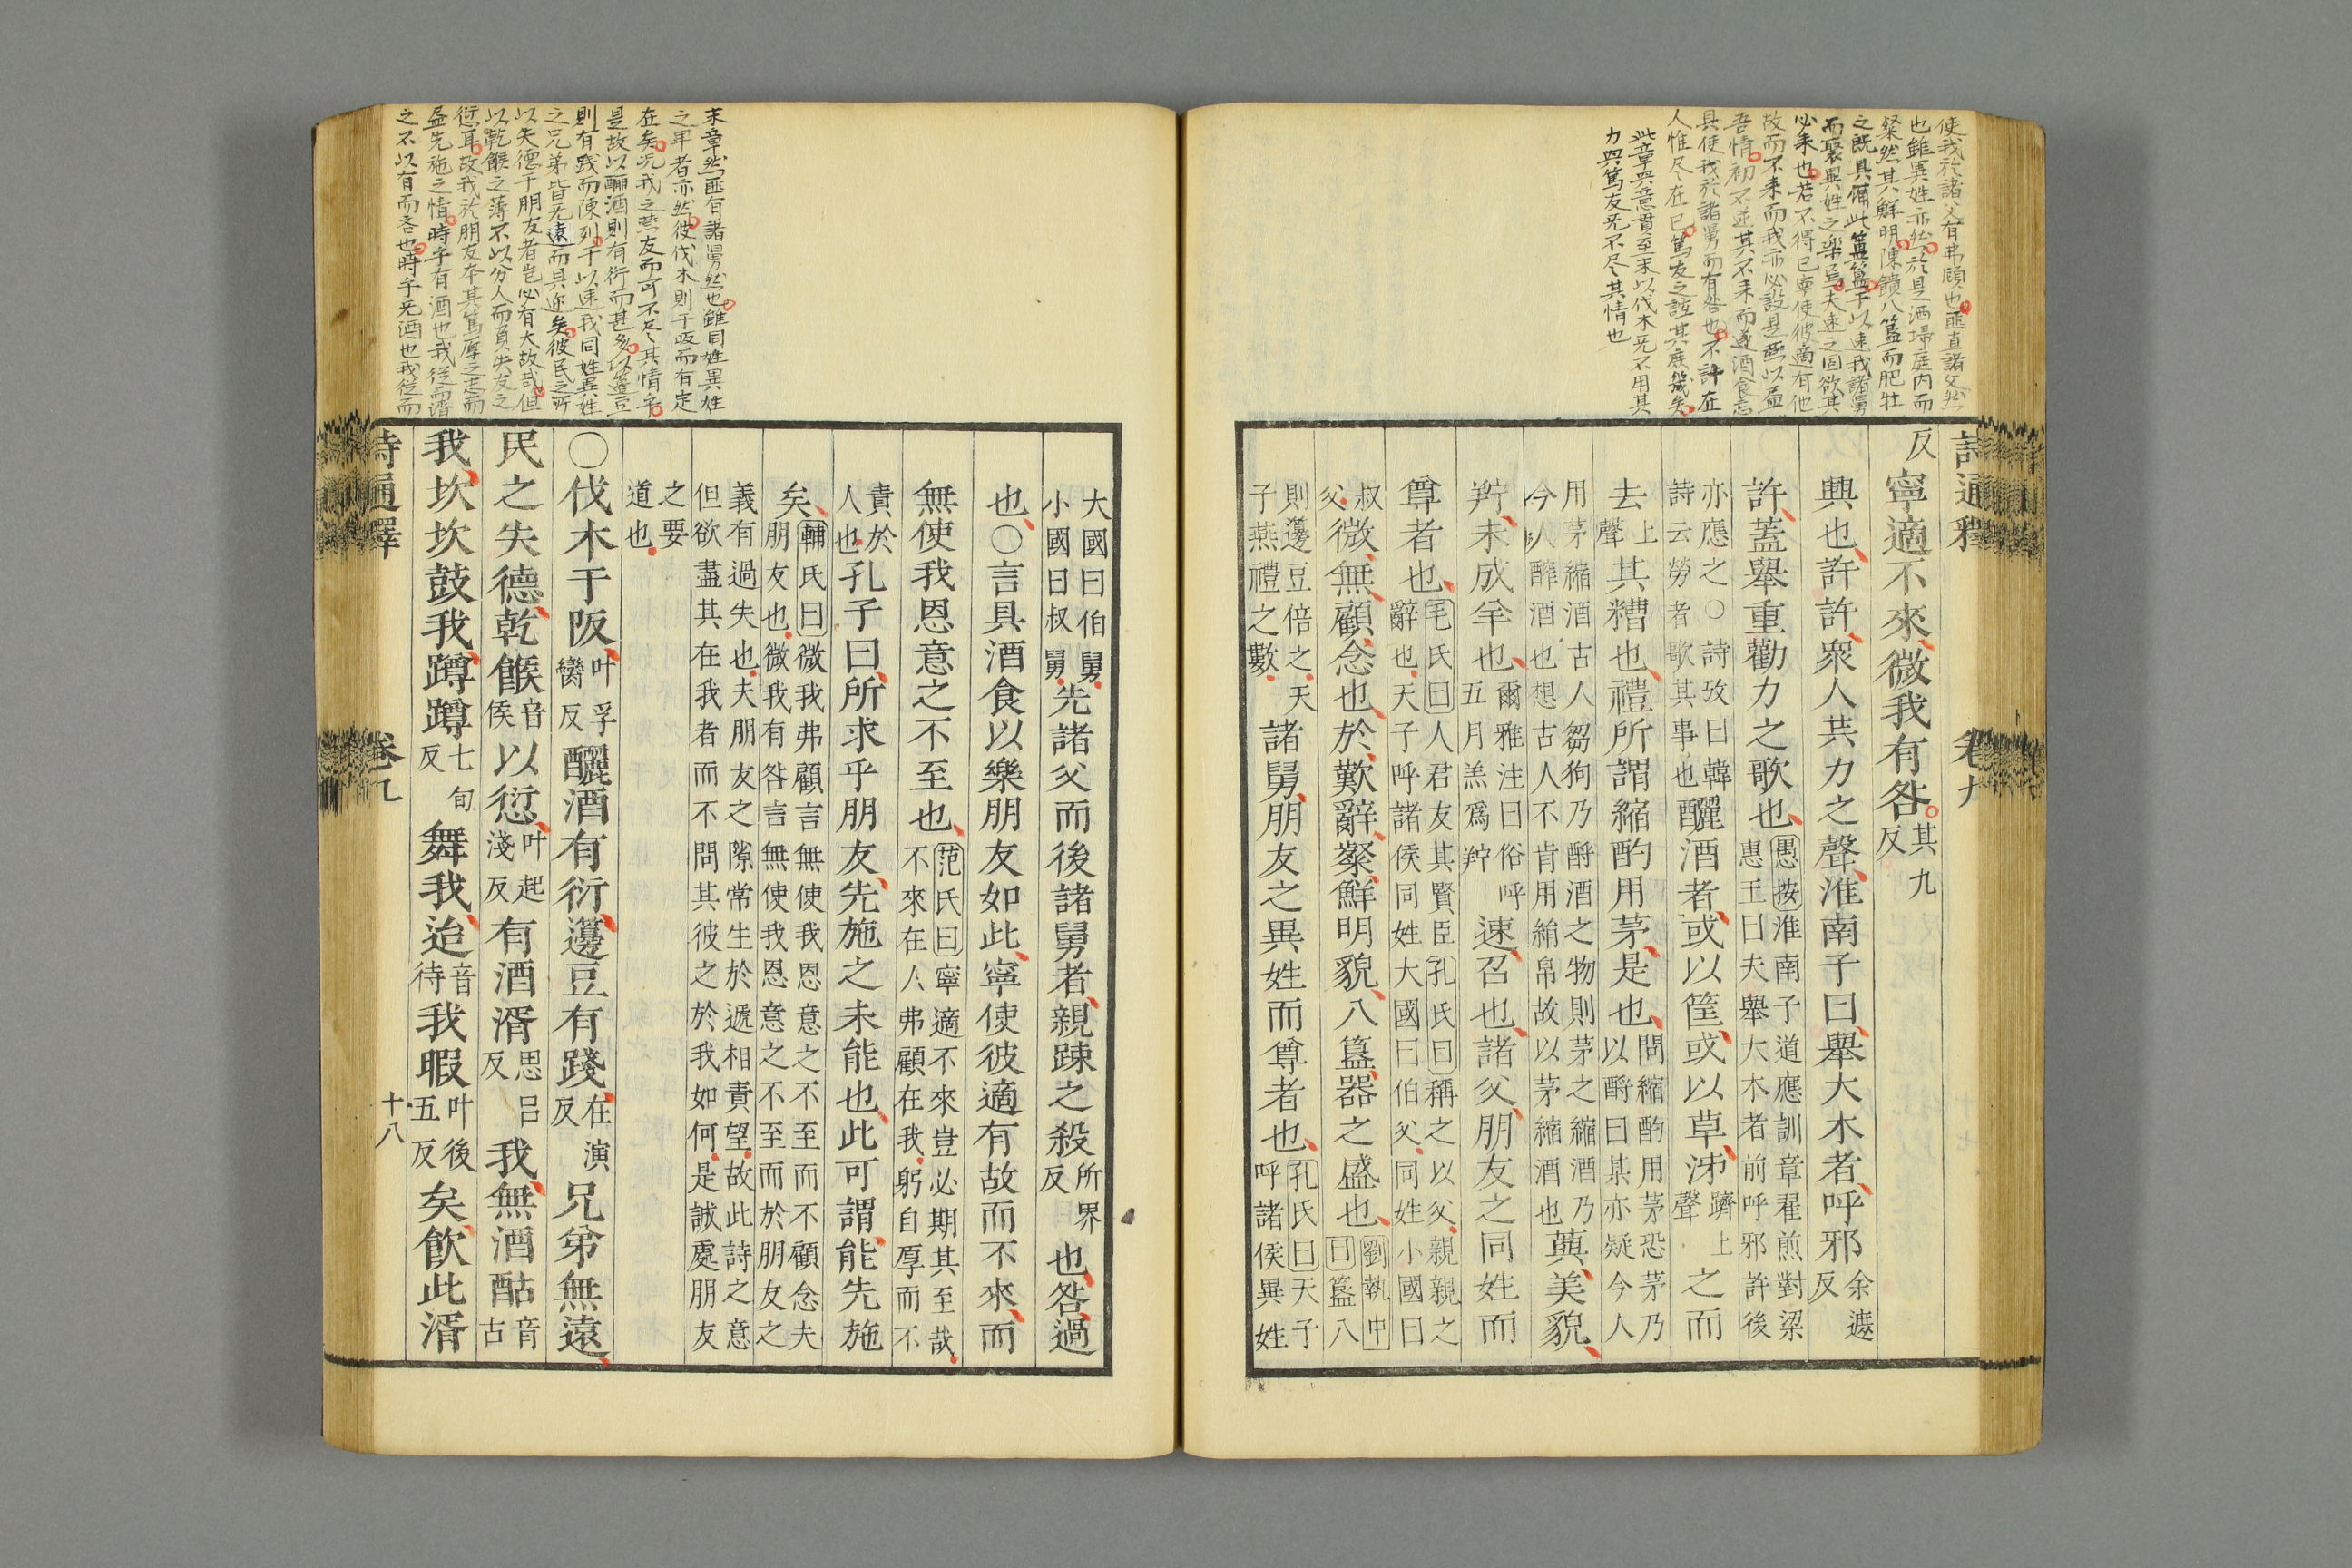 使我於諸父有弗顧也匪直諸父然
也雖異姓亦然於是酒埽庭内而
粲然其鮮明陳饋八簋而肥牡
之既具備此簋簋于以速我諸舅
而聚異姓之樂焉夫速之固欲其
必来也若不得已寧使彼適有他
故而不来而我亦必設是燕以盡
吾情初不逆其不来而遂酒食忘
具使我於諸舅而有咎也不許在
人惟尽在已篤友之誼其庶幾矣
此章興意貫至末以伐木旡不用其
力興篤友旡不尽其情也
詩通釋
卷九
反寧適不來微我有咎其九反
興也許許衆人共力之聲淮南子曰舉大木者呼邪余遮反
許蓋舉重勸力之歌也愚按淮南子道應訓章翟煎對梁惠王曰夫舉大木者前呼邪許後
亦應之○詩攷曰韓詩云勞者歌其事也釃酒者或以筐或以草泲躋上聲之而
去上聲其糟也禮所謂縮酌用茅是也問縮酌用茅恐茅乃以酹曰某亦疑今人
用茅縮酒古人芻狗乃酹酒之物則茅之縮酒乃今人醡酒也想古人不肯用絹帛故以茅縮酒也藇美貌
羜未成羊也爾雅注曰俗呼五月羔爲羜速召也諸父朋友之同姓而
尊者也毛氏曰人君友其賢臣孔氏曰稱之以父親親之辭也天子呼諸侯同姓大國曰伯父同姓小國曰
叔父微無顧念也於歎辭粲鮮明貌八簋器之盛也劉執中曰簋八
則籩豆倍之天子燕禮之數諸舅朋友之異姓而尊者也孔氏曰天子呼諸侯異姓
末章然匪有諸舅然也雖同姓異姓
之卑者亦然彼伐木則于阪而有定
在矣况我之燕友而可不尽其情乎
是故以釃酒則有衍而甚多以籩豆
則有踐而陳列于以速我同姓異姓
之兄弟皆旡遠而具迩矣彼民之所
以失德于朋友者豈必有大故哉但
以乾餱之薄不以分人而負失友之
愆耳故我於朋友本其篤厚之志而
盡先施之情時乎有酒也我從而湑
之不以有而吝也時乎旡酒也我從而
大國曰伯舅小國曰叔舅先諸父而後諸舅者親踈之殺所界反也咎過
也○言具酒食以樂朋友如此寧使彼適有故而不來而
無使我恩意之不至也范氏曰寧適不來豈必期其至哉不來在人弗顧在我躬自厚而不
責於人也孔子曰所求乎朋友先施之未能也此可謂能先施
矣輔氏曰微我弗顧言無使我恩意之不至而不顧念夫朋友也微我有咎言無使我恩意之不至而於朋友之
義有過失也夫朋友之隙常生於遞相責望故此詩之意但欲盡其在我者而不問其彼之於我如何是誠處朋友
之要道也
○伐木于阪叶孚臠反釃酒有衍籩豆有踐在演反兄弟無遠
民之失德乾餱音侯以愆叶起淺反有酒湑思呂反我無酒酤音古
我坎坎鼓我蹲蹲七旬反舞我迨音待我暇叶後五反矣飲此湑
詩通釋
卷九
十八